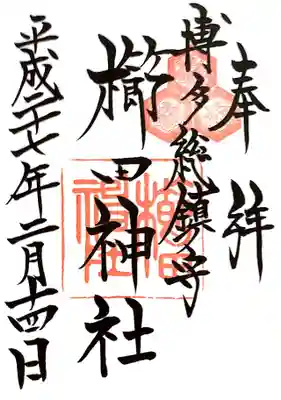 奉拝
博多総鎮守
櫛田神社
平成二十七年二月十四日
櫛田神社